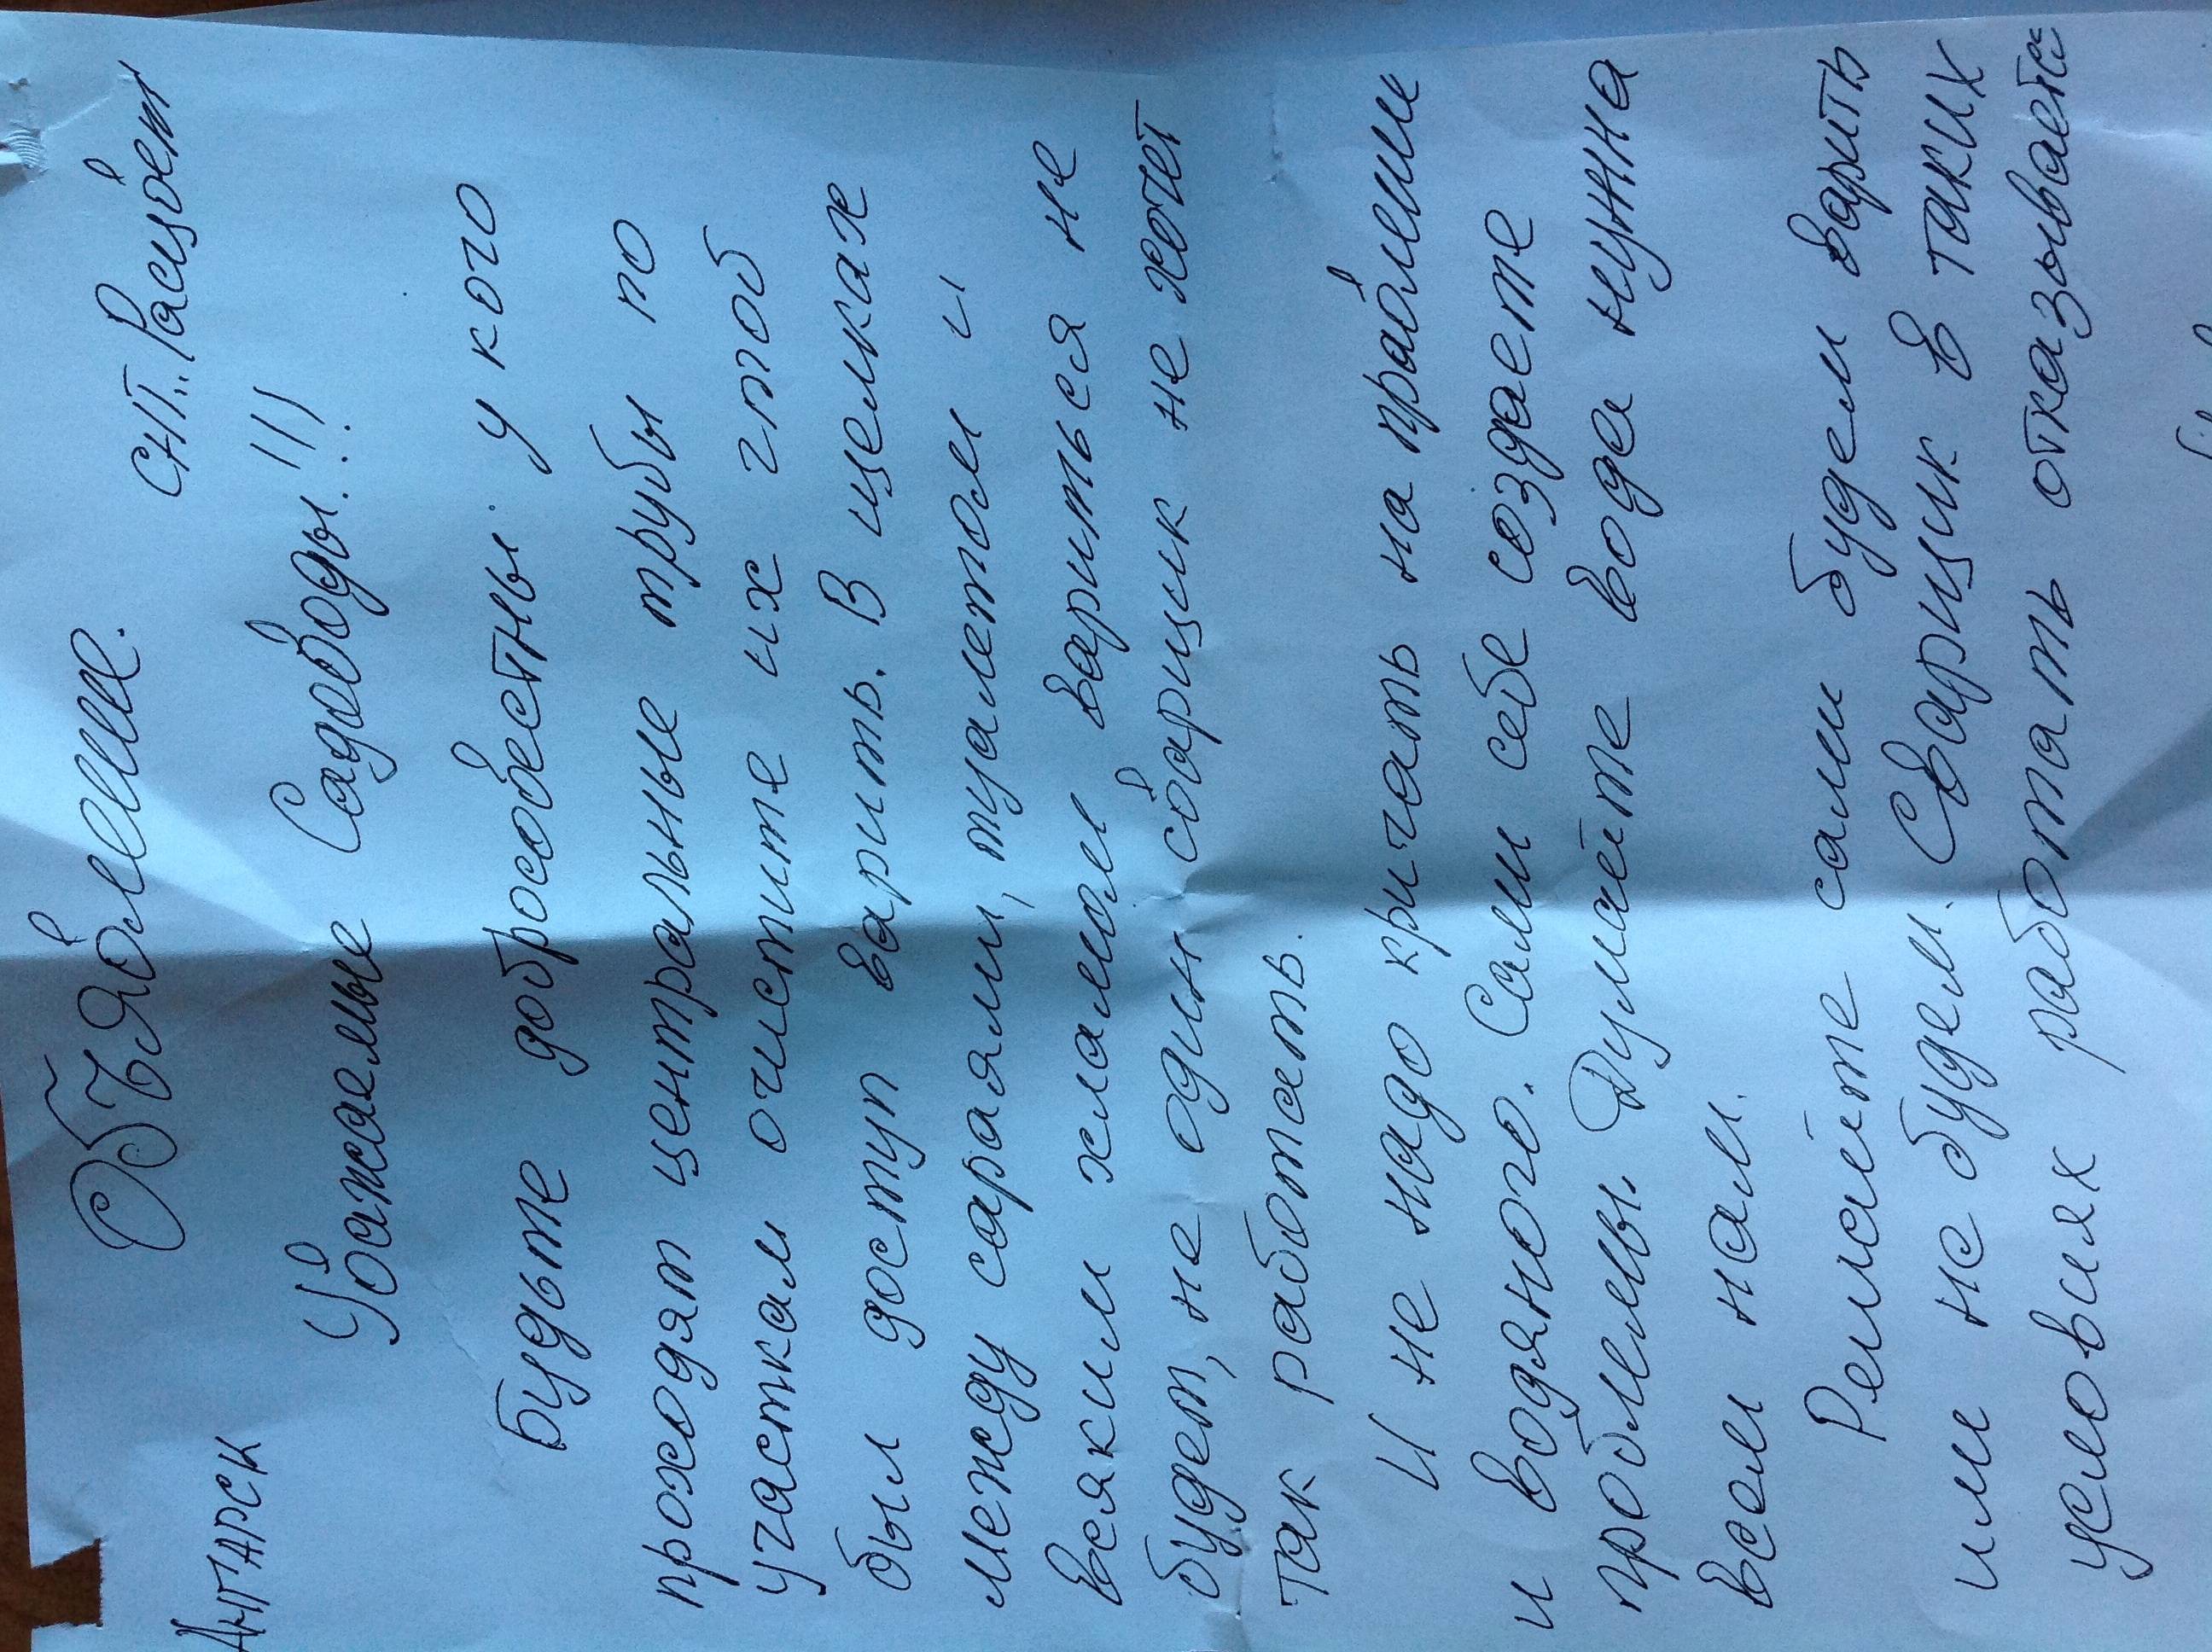 Объявление.
Ангарск
СНТ. Расцвет
Уважаемые Садоводы!!!
Будьте добросовестны у кого
проходят центральные трубы по
участкам очистите их чтоб
был доступ варить. В щелках
между сараями, туалетом и
всяким хламом вариться не
будет, не один сварщик не хочет
так работать.
И не надо кричать на правлении
и водяного. Сами себе создаете
проблемы. Думайте вода нужна
всем нам.
Решайте сами будем варить
или не будем. Сварщик в таких
условиях работать отказывается